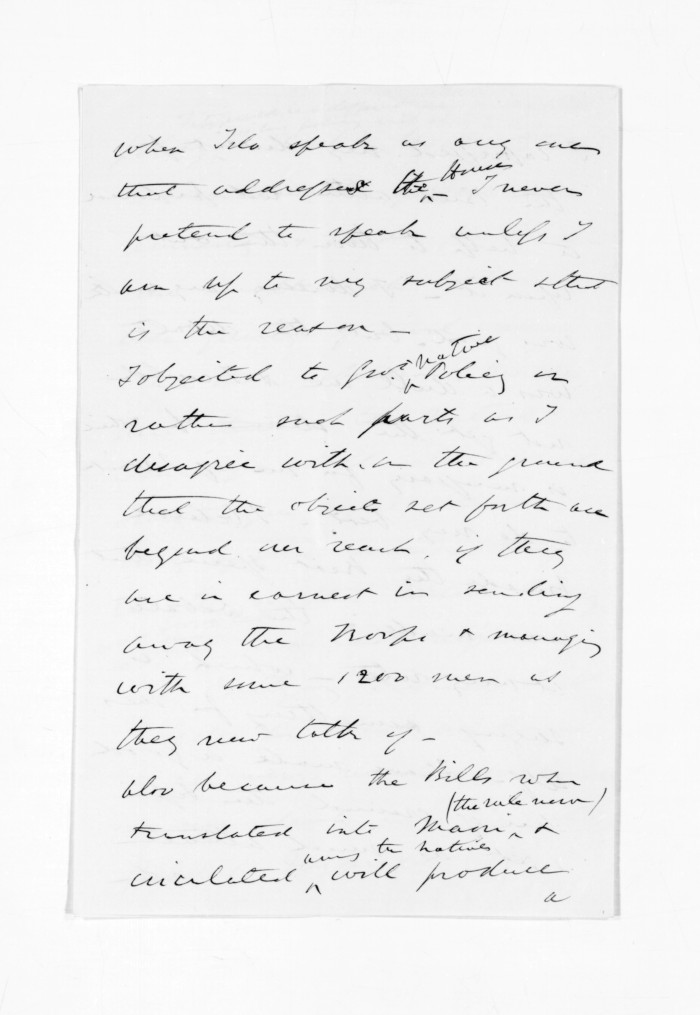 when I do speak as any one
that addresses the House - I never
pretend to speak unless I
am up to my subject & that
is the reason -
I objected to Govt native Policy or
rather such parts as I
disagree with on the ground
that the objects set forth are
beyond our reach, if they
are in earnest in sending
away the Troops & managing
with some 1200 men as
they now talk of -
also because the Bills when
translated into Maori (the rule now) &
circulated amg the natives will produce
a